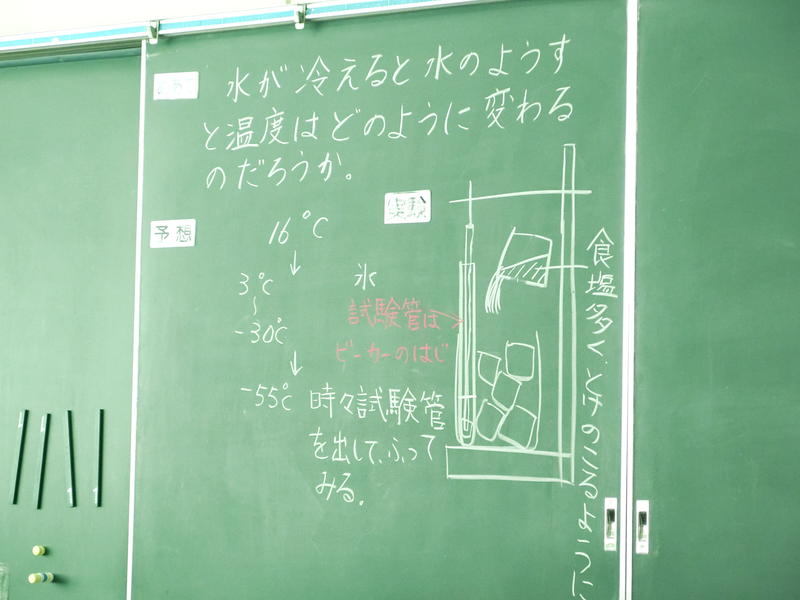 水が冷えると水のようす
と温度はどのように変わる
のだろうか。
予想
16℃
↓
3℃
〜
-30℃
↓
-55℃
実験
氷
試験管は→
ビーカーのはじ
時々試験管
を出して、ふって
みる。
食塩多く、とけのこるように